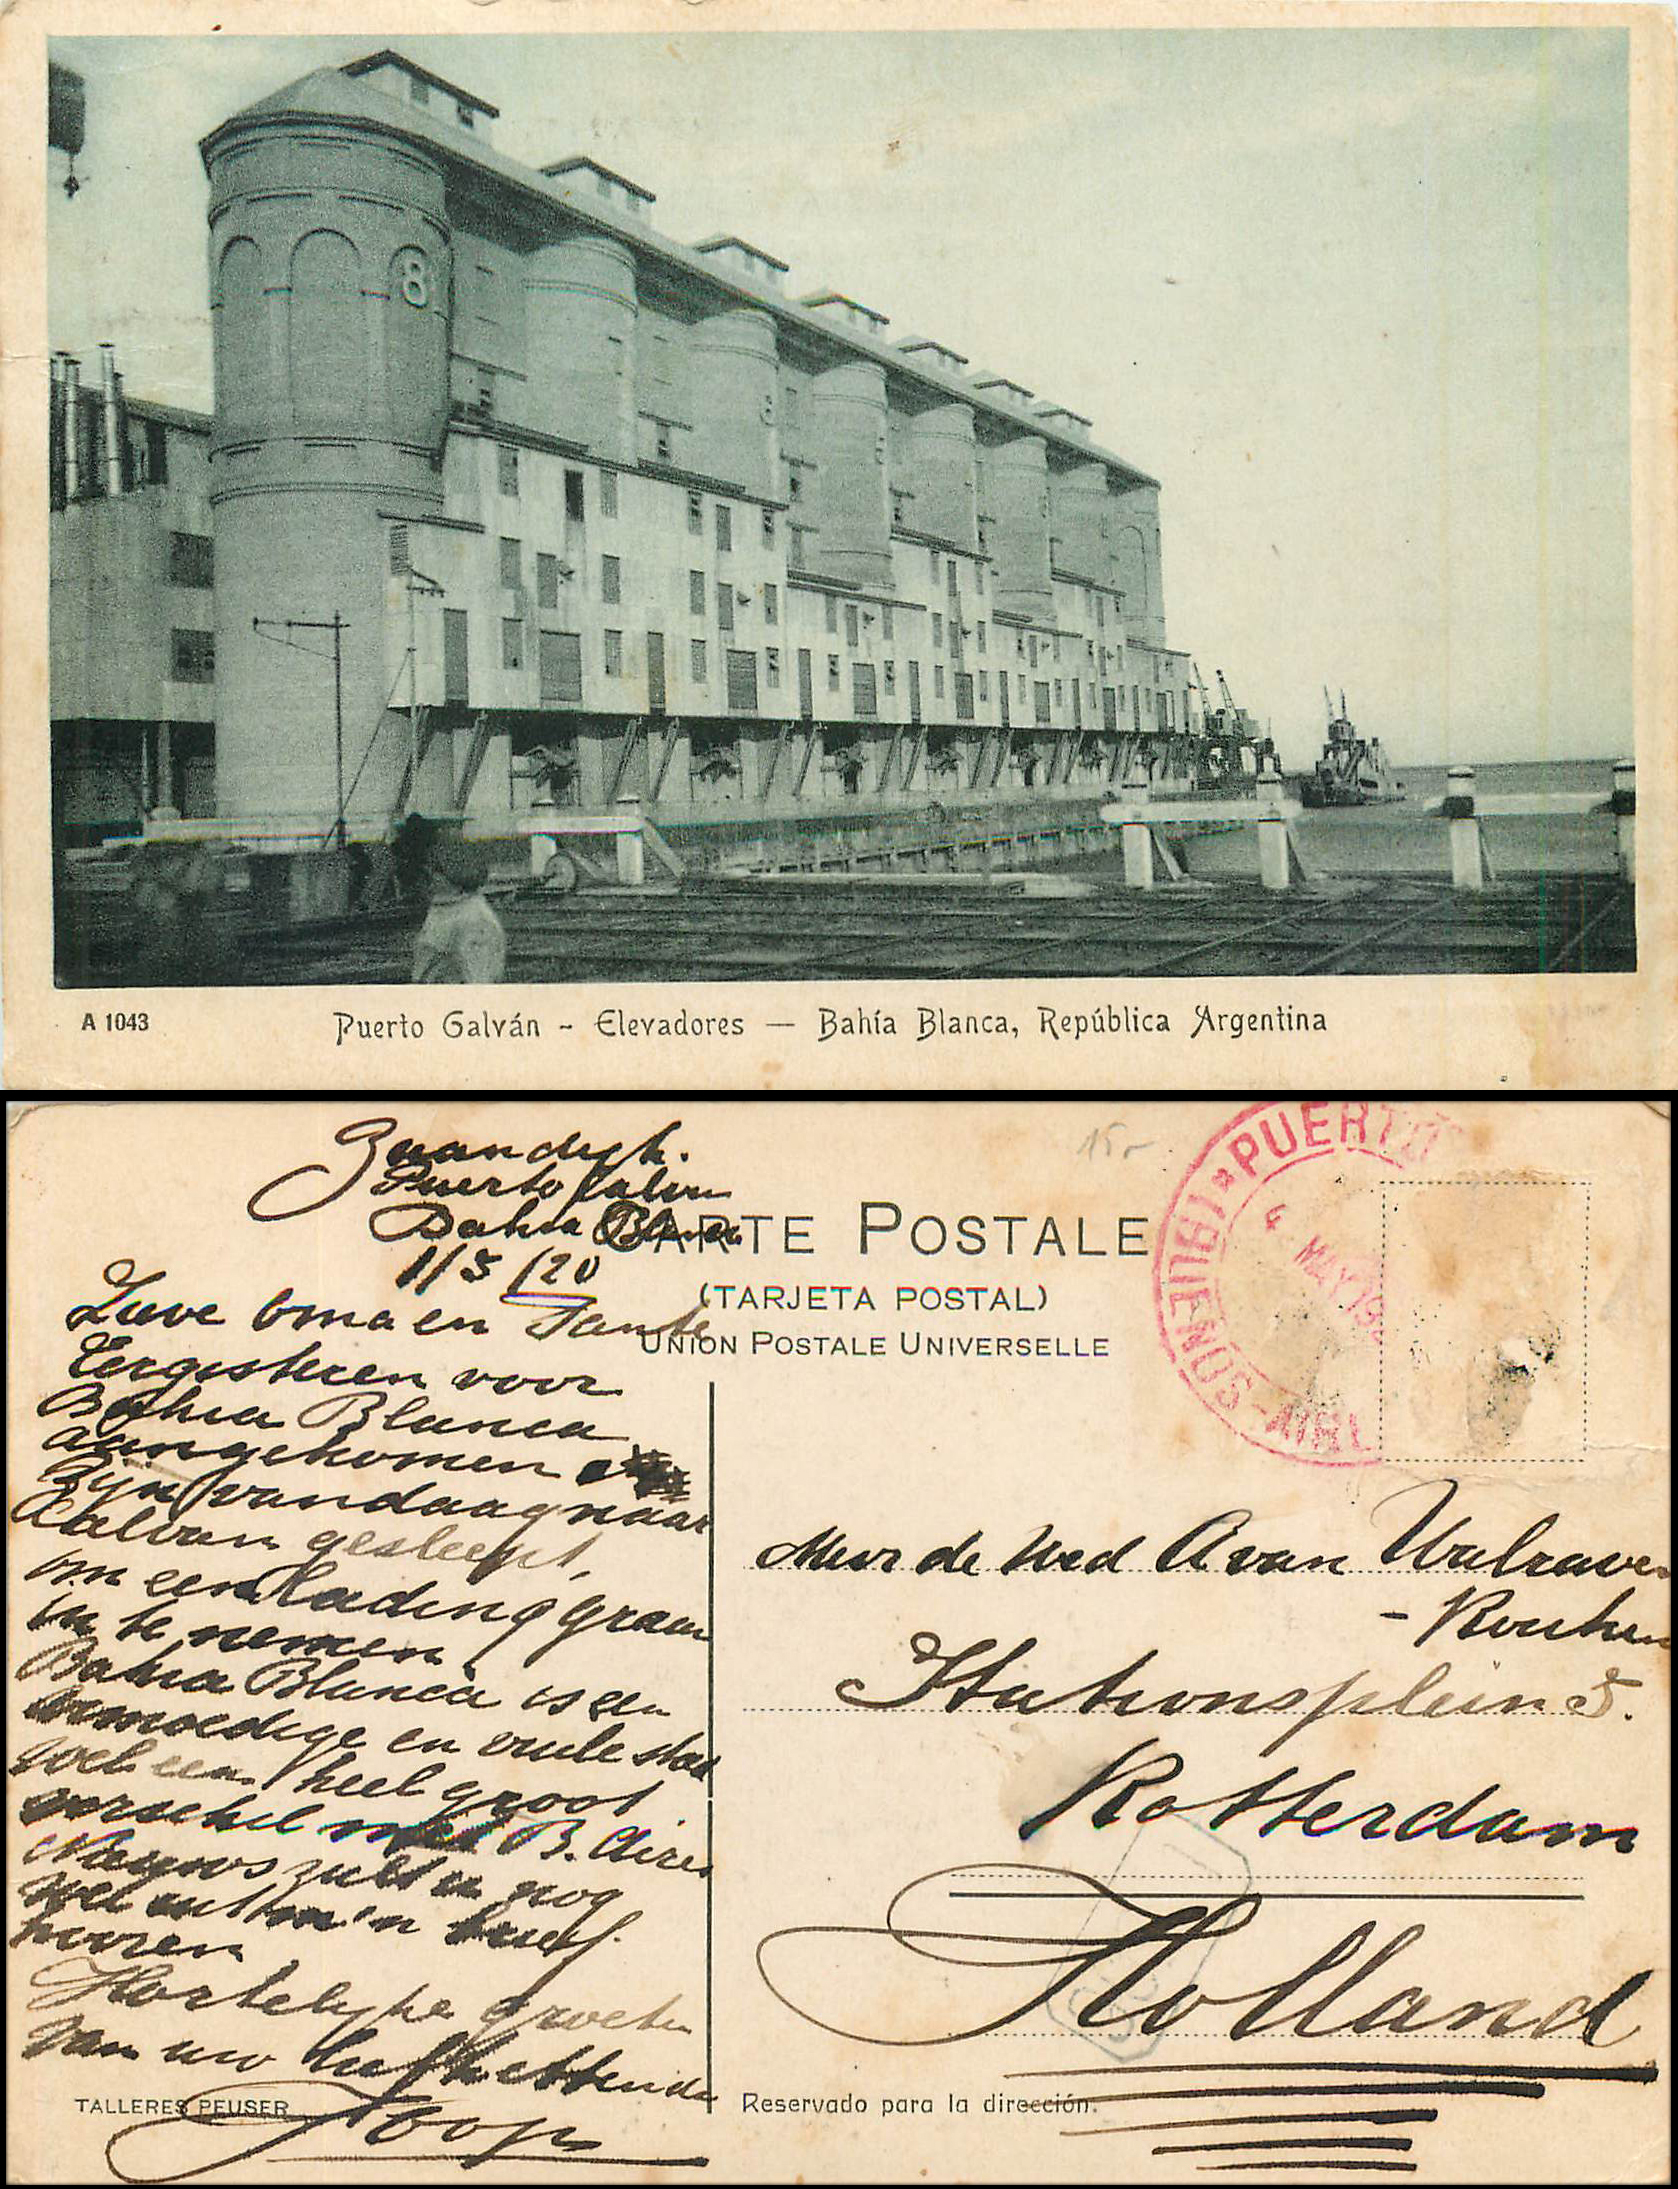 8
A 1043 Puerto Galván - Elevadores — Bahía Blanca, República Argentina
Zaandijk.
Puerto Galvan
Bahia Blanca
1/5/20
CARTE POSTALE
(TARJETA POSTAL)
UNION POSTALE UNIVERSELLE
15,-
PUERTO
4 MAY 19
BUENOS-AIRE
Lieve Oma en Tante
Eergisteren voor
Bahia Blanca
aangekomen
Zijn vandaag naar
Galvan gesleept,
om een lading graan
in te nemen
Bahia Blanca is een
armoedige en vuile stad
wel een heel groot
verschil met B. Aires
Nieuws zult u nog
wel uit m'n brief
hooren
Hartelijke groeten
van uw liefhebbende
Joop
Mevr de Wed A van Walraven
- Kouhen
Stationsplein 5.
Rotterdam
Holland
TALLERES PEUSER
Reservado para la dirección.